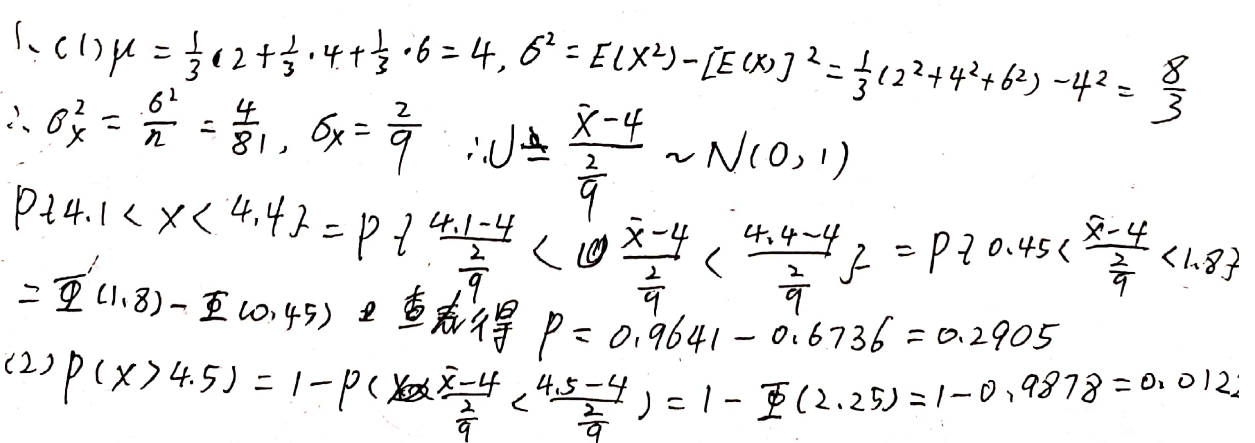 1、(1)μ = 1/3·2 + 1/3·4 + 1/3·6 = 4, σ² = E(X²) - [E(X)]² = 1/3(2²+4²+6²) - 4² = 8/3
∴ σ_x̄² = σ²/n = 4/81, σ_x̄ = 2/9 ∴ U = (x̄-4)/(2/9) ~ N(0,1)
P{4.1 < x < 4.4} = P{(4.1-4)/(2/9) < (x̄-4)/(2/9) < (4.4-4)/(2/9)} = P{0.45 < (x̄-4)/(2/9) < 1.8}
= Φ(1.8) - Φ(0.45) 查表得 P = 0.9641 - 0.6736 = 0.2905
(2) P(x > 4.5) = 1 - P((x̄-4)/(2/9) < (4.5-4)/(2/9)) = 1 - Φ(2.25) = 1 - 0.9878 = 0.0122